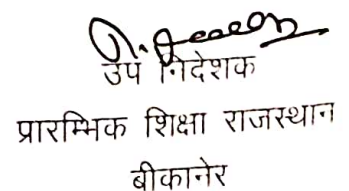 उप निदेशक
प्रारम्भिक शिक्षा राजस्थान
बीकानेर